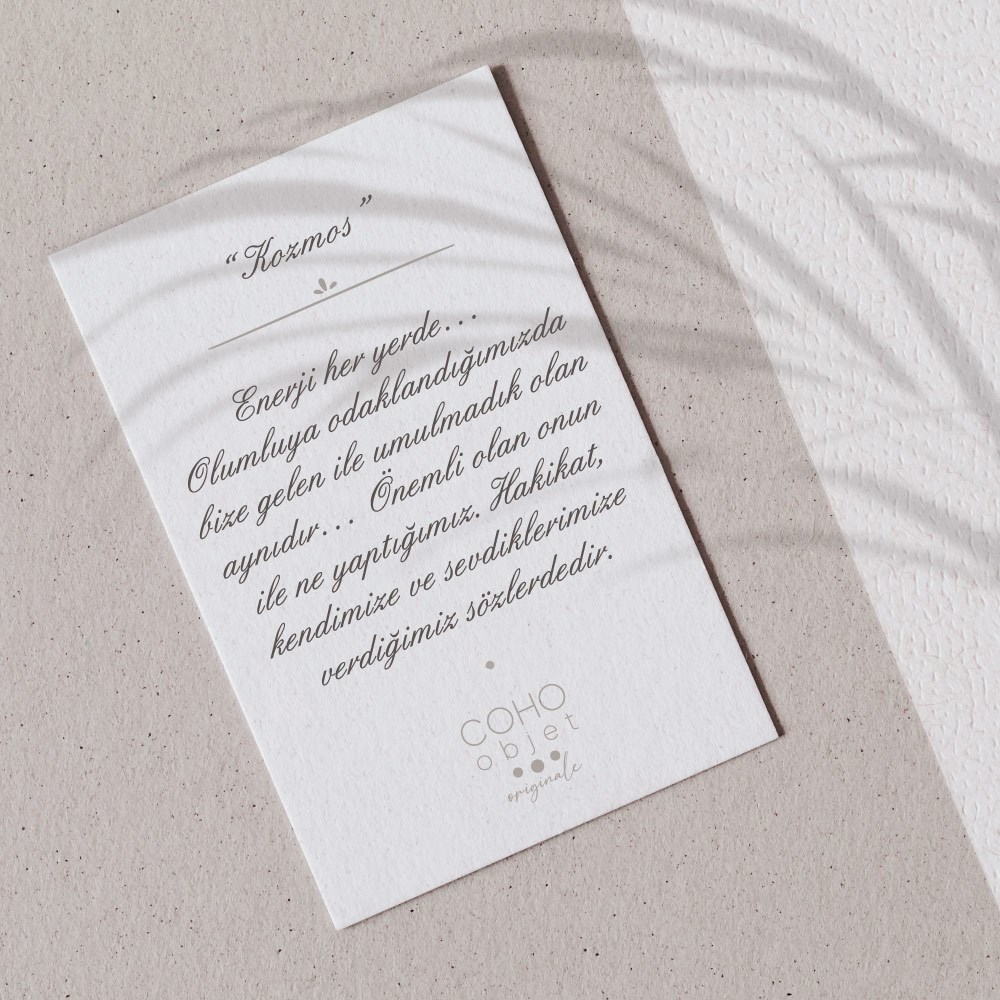 “Kozmos”
Enerji her yerde...
Olumluya odaklandığımızda
bize gelen ile umulmadık olan
aynıdır... Önemli olan onun
ile ne yaptığımız. Hakikat,
kendimize ve sevdiklerimize
verdiğimiz sözlerdedir.
COHO
objet
originale